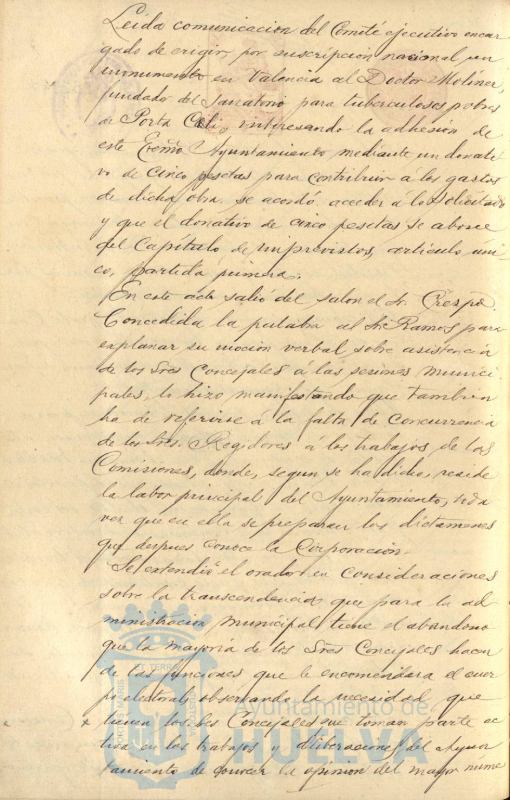 Leida comunicacion del Comité ejecutivo encar
gado de erigir, por suscripción nacional, un
monumento en Valencia al Doctor Moliner,
fundador del Sanatorio para tuberculosos pobres
de Porta Celi, interesando la adhesión de
este Excmo Ayuntamiento mediante un donati
vo de cinco pesetas para contribuir á los gastos
de dicha obra, se acordó acceder á lo solicitado
y que el donativo de cinco pesetas se abone
del Capítulo de imprevistos, artículo úni
co, partida primera.
En este acto salió del salon el Sr. Crespo.
Concedida la palabra al Sr. Ramos para
explanar su moción verbal sobre asistencia
de los Sres Concejales á las sesiones munici
pales, lo hizo manifestando que tambien
ha de referirse á la falta de concurrencia
de los Sres. Regidores á los trabajos de las
Comisiones, donde, segun se ha dicho, reside
la labor principal del Ayuntamiento, toda
vez que en ella se preparan los dictamenes
que despues conoce la Corporación.
Se extendió el orador en consideraciones
sobre la transcendencia que para la ad
ministración municipal tiene el abandono
que la mayoría de los Sres Concejales hacen
de las funciones que le encomendara el cuer
po electoral, observando la necesidad que
tienen los Sres Concejales que toman parte ac
tiva en los trabajos y deliberaciones del Ayun
tamiento de conocer la opinion del mayor nume
Ayuntamiento de
HUELVA